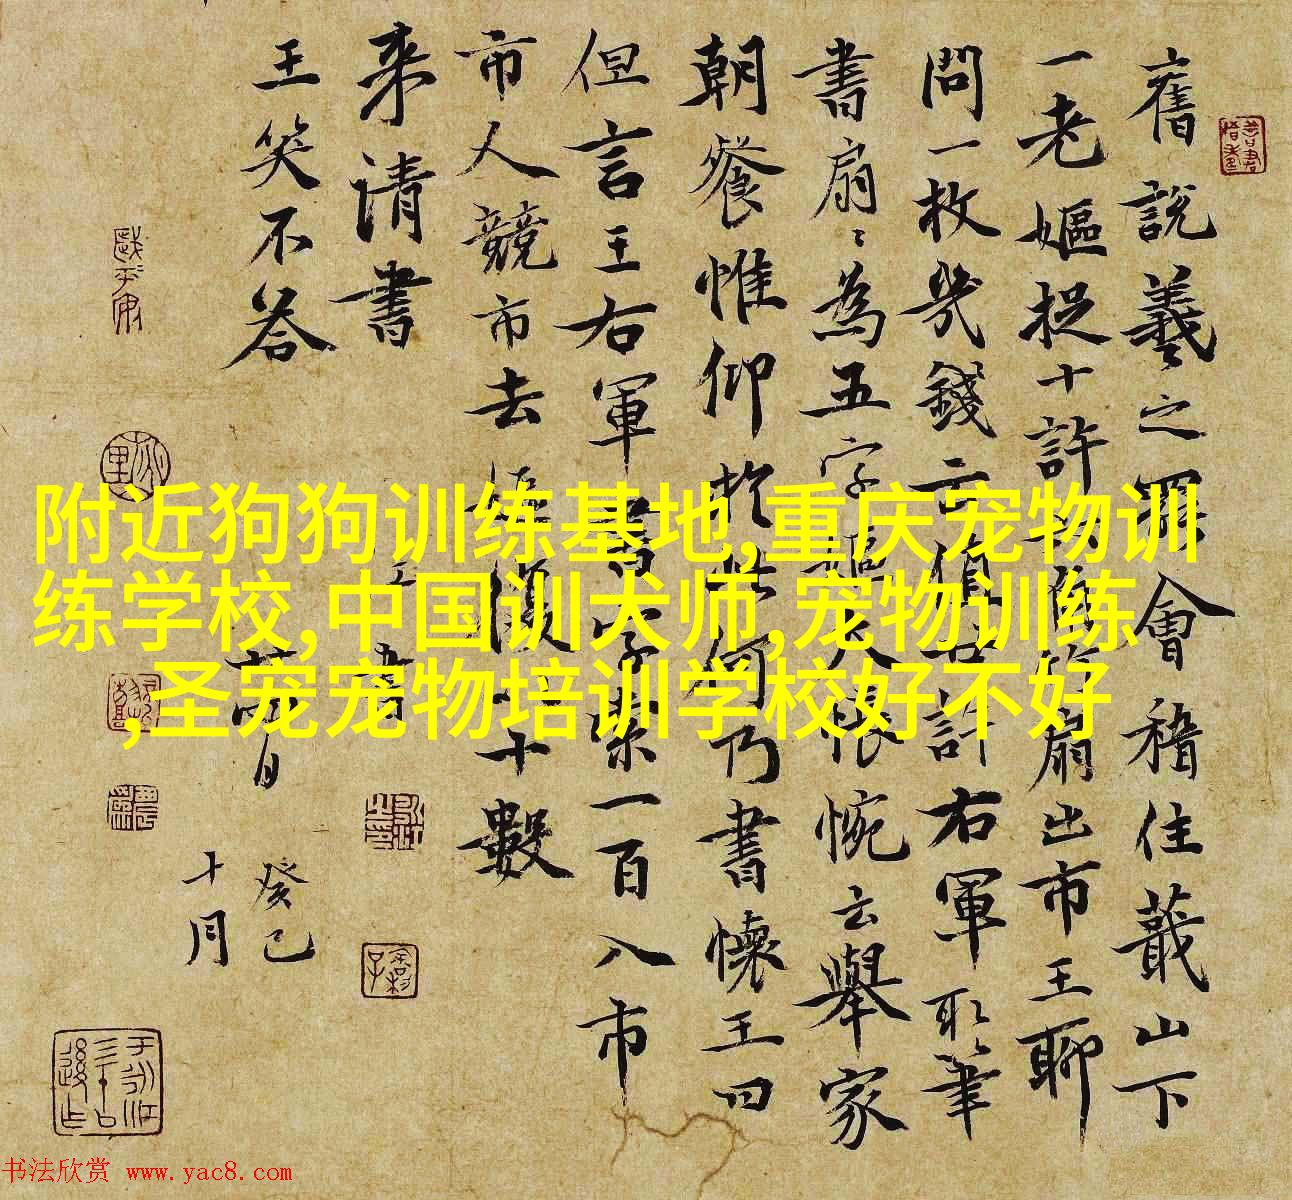 舊說羲之罷會稽住蕺山下
一老嫗捉十許
扇出市王聊
問一枚幾錢云
許右軍取筆
書扇〻為五字
人悵惋云舉家
朝餐惟仰於
何乃書懷王曰
但言王右軍書字索一百入市
市人競市去
十數
来請書
王笑不答
癸巳
十月
附近狗狗训练基地,重庆宠物训
练学校,中国训犬师,宠物训练
,圣宠宠物培训学校好不好
书法欣赏 www.yac8.com